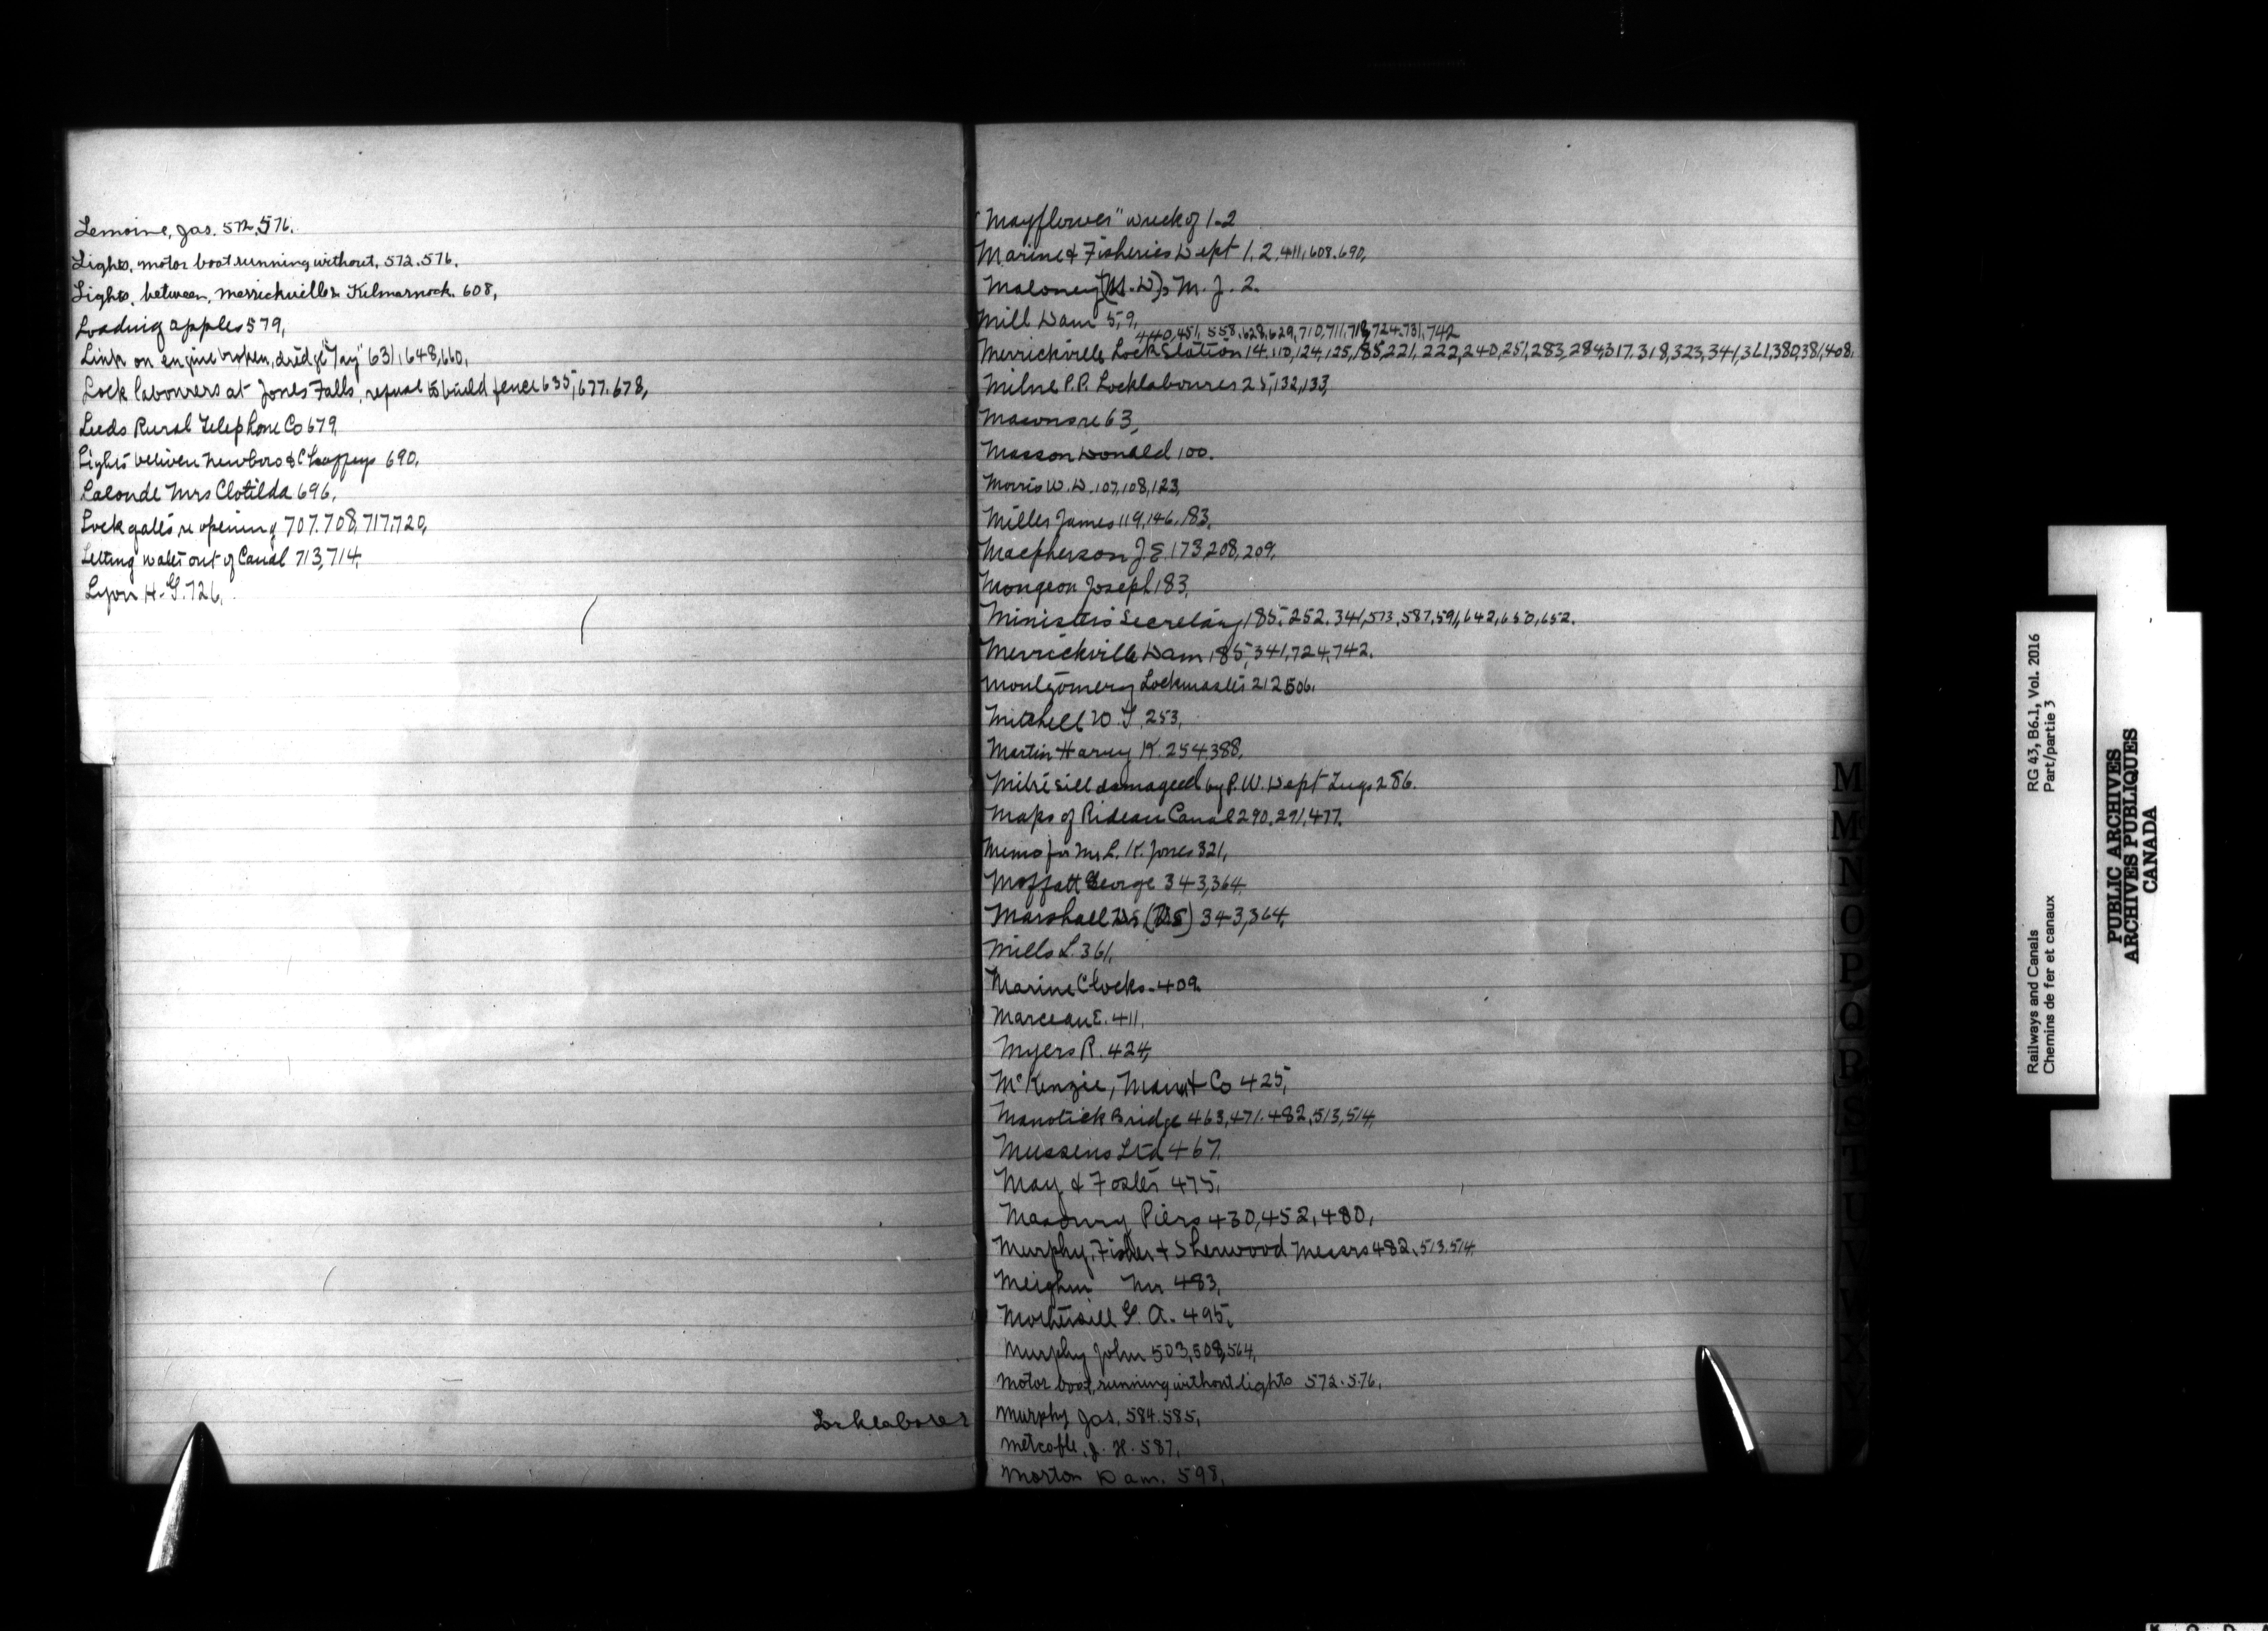 Lemoine, Jas. 572, 576.
Lights, motor boat running without, 572. 576.
Lights, between, Merrickville & Kilmarnock. 608,
Loading apples 579,
Link on engine broken, dredge "Tay" 631, 648, 660,
Lock labourers at Jones Falls, refusal to build fence 635, 677. 678,
Leeds Rural Telephone Co 679,
Lights between Newboro & Chaffeys 690,
Lalonde Mrs Clotilda 696,
Lock gates re opening 707. 708, 717, 720,
Letting water out of Canal 713, 714,
Lyon H. G. 726,
Locklabourer
"Mayflower" wreck of 1-2
Marine & Fisheries Dept 1, 2, 411, 608. 690,
Maloney (M.D), M. J. 2.
Mill Dam 5, 9,
440, 451, 558, 628, 629, 710, 711, 718, 724, 731, 742
Merrickville Lock Station 14, 110, 124, 125, 185, 221, 222, 240, 251, 283, 284, 317, 318, 323, 341, 361, 380, 381, 408,
Milne P.P. Locklabourer 25, 132, 133,
Masons re 63,
Masson Donald 100.
Morris W. D. 107, 108, 123,
Miller James 119, 146, 183,
Macpherson J. E. 173, 208, 209,
Mongeon Joseph 183,
Minister's Secretary 185, 252, 341, 573, 587, 591, 642, 650, 652.
Merrickville Dam 185, 341, 724, 742.
Montgomery Lockmaster 212, 506,
Mitchell W. T. 253,
Martin Harvey K. 254, 388,
Mitre sill damaged by P. W. Dept Tugs 286.
Maps of Rideau Canal 290, 291, 477.
Memo for Mr L. K. Jones 321,
Moffatt George 343, 364,
Marshall 343, 364,
Mills L. 361,
Marine Clocks. 409.
Marceau E. 411,
Myers R. 424,
McKenzie, Mann & Co 425,
Manotick Bridge 463, 471. 482, 513, 514,
Mussens Ltd 467.
May & Foster 475,
Masonry Piers 430, 452, 480,
Murphy, Fisher & Sherwood Messrs 482, 513, 514,
Meighen Mr 483,
Mothersill G. A. 495,
Murphy John 503, 508, 564,
Motor boat, running without lights 572. 576,
Murphy Jas, 584. 585,
Metcalfe, J. H. 587,
Morton Dam. 598,
M
M
N
O
P
Q
R
S
T
U
V
W
X
Railways and Canals RG 43, B6.1, Vol. 2016
Chemins de fer et canaux Part/partie 3
PUBLIC ARCHIVES
ARCHIVES PUBLIQUES
CANADA